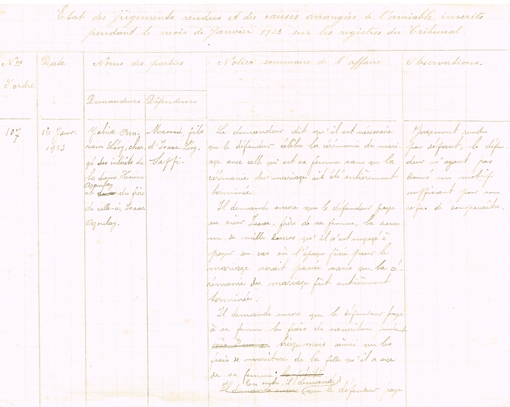 Etat des Jugements rendus et des causes arrangées à l'amiable, inscrits
pendant le mois de Janvier 1923 sur les registres du Tribunal.
Nos
d'ordre
Date
Noms des parties
Demandeurs
Défendeurs
Notice sommaire de l'affaire
Observations.
107
16 Janv.
1923
Lévy, char-
gé des intérêts de
la dame
Azoulay
et du frère
de celle-ci, Isaac
Azoulay.
fils
d'Isaac Lévy,
Saffi.
Le demandeur dit qu'il est nécessaire
que le défendeur célèbre la cérémonie du mari-
age avec celle qui est sa femme sans que la
cérémonie du mariage ait été entièrement
terminée.
Il demande encore que le défendeur paye
au sieur Isaac, frère de sa femme, la som-
me de mille douros qu'il s'est engagé à
payer au cas où l'époque fixée pour le
mariage serait passée sans que la cé-
rémonie du mariage fût entièrement
terminée.
Il demande encore que le défendeur paye
à sa femme les frais de nourriture
mois ainsi que les
frais de nourriture de la fille qu'il a eue
de sa femme.
En outre, il demande
que le défendeur paye
Jugement rendu
par défaut, le défen-
deur n'ayant pas
donné un motif
suffisant pour son
refus de comparaître.